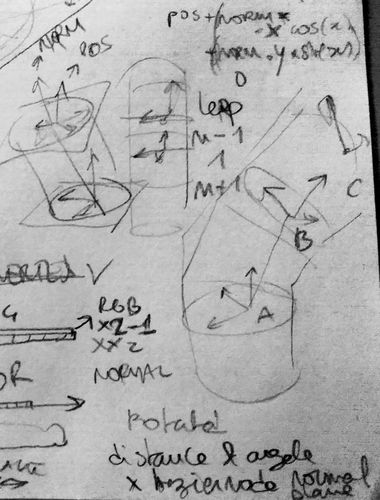 pos + (NORM *
-x cos(x)
NORM
POS
0
lerp
n-1
1
n+1
C
B
A
VERTEX V
RGB
x2-1
xx2
NORMAL
OR
Rotated
distance & angle
x beziernode normal
plane